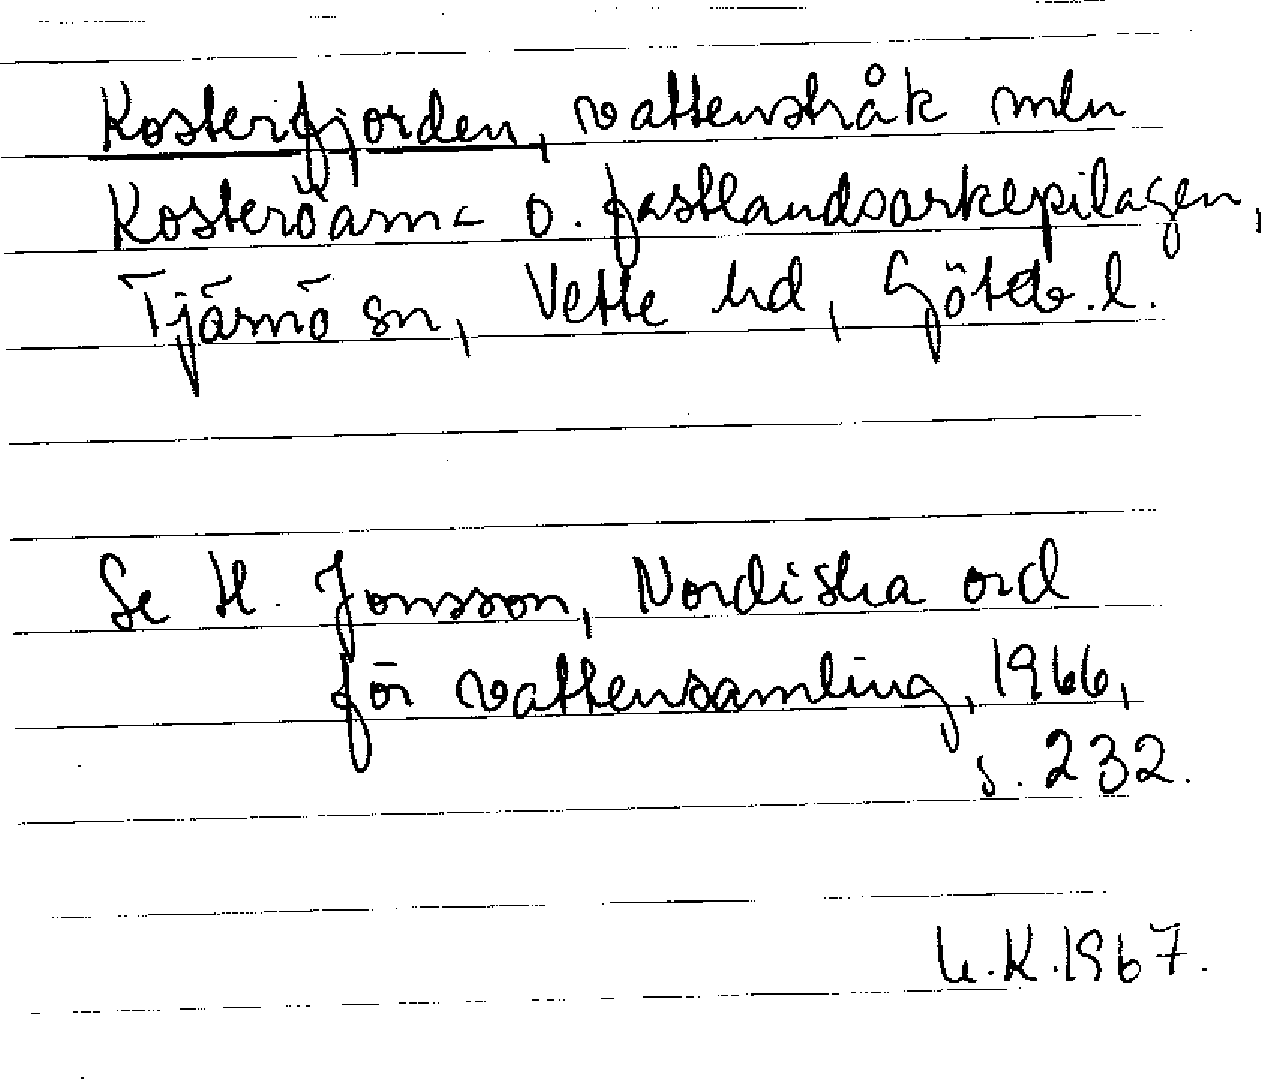 Kosterfjorden, vattenstråk mln
Kosteröarna o. fastlandsarkepilagen,
Tjärnö sn, Vette hd, Götéb. l.
Se H. Jonsson, Nordiska ord
för vattensamling, 1966,
s. 232.
U.K. 1967.